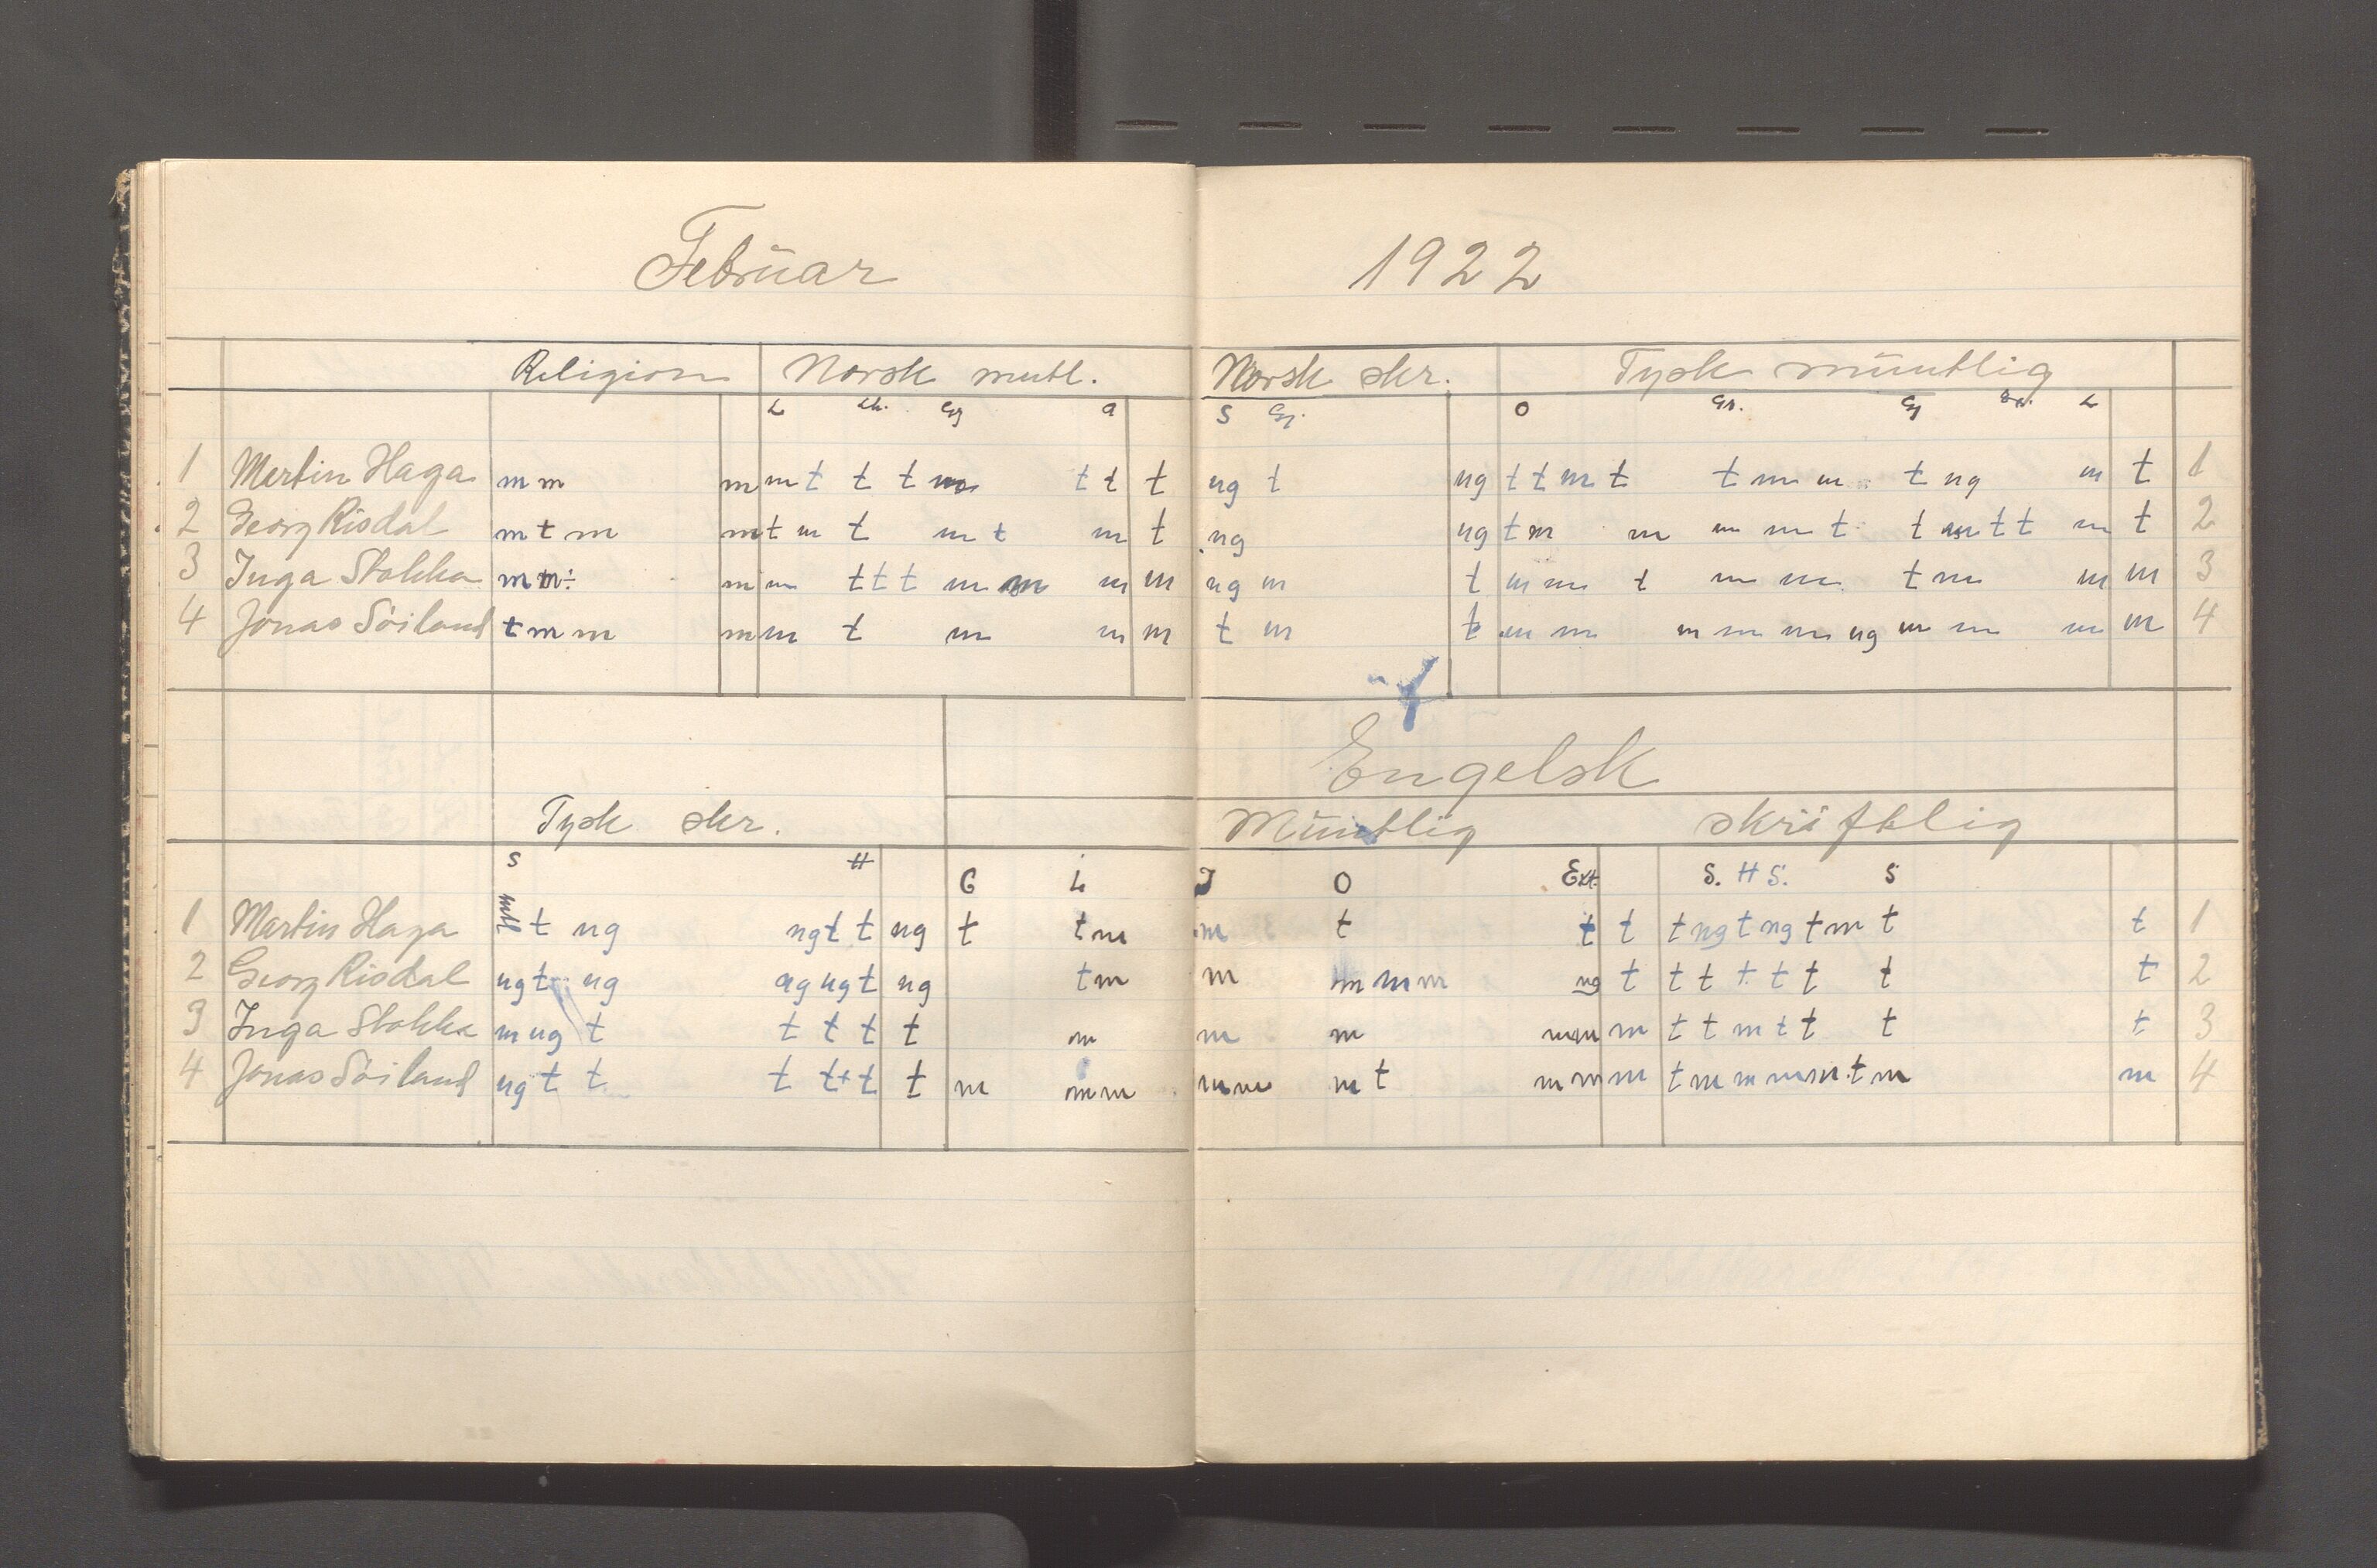 Februar 1922
Religion Norsk mutl. Norsk skr. Tysk müntlig
L Lh. Gj a S Gj. O Gr. Gj L
1 Martin Haga m m m m t t t t t t ug t ug t t m t t m m t ug m t 1
2 Georg Risdal m t m m t m t m t m t ug ug t m m m m t t m t t m t 2
3 Inga Stokka m m m m t t t m m m m ug m t m m t m m t m m m 3
4 Jonas Söiland t m m m m t m m m t m t m m m m m ug m m m m 4
Engelsk
Tysk skr. Müntlig skriftlig
S H G L J O Ext. S. H S. S
1 Martin Haga t ug ug t t ug t t m m t t t t ug t ug t m t t 1
2 Georg Risdal ug t ug ug ug t ug t m m m m m ug t t t t t t t t 2
3 Inga Stokka m ug t t t t t m m m m m m t t m t t t t 3
4 Jonas Söiland ug t t t t t t t m m m m m m t m m m t m m m m t m m 4